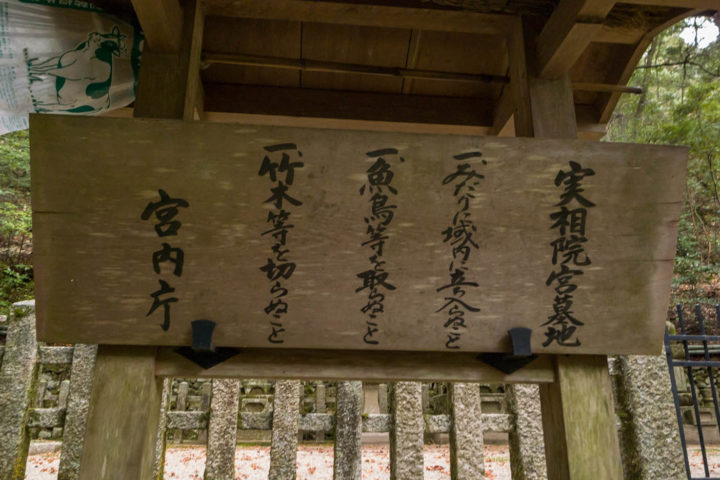 実相院宮墓地
一、みだりに域内に立入らぬこと
一、魚鳥等を取らぬこと
一、竹木等を切らぬこと
宮内庁